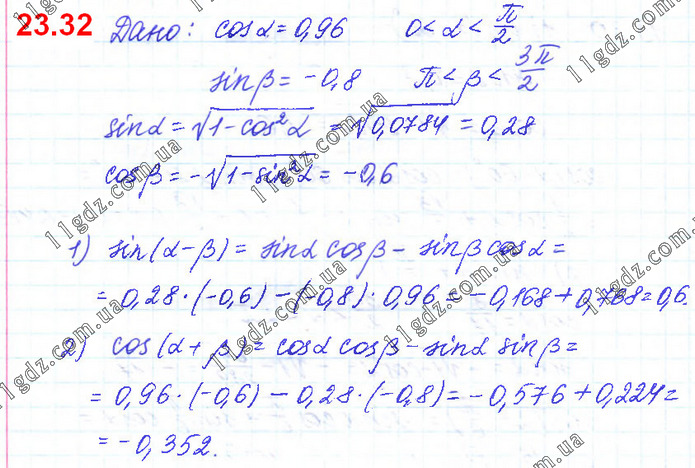 23.32 Дано: cosα = 0,96 0 < α < π/2
sinβ = -0,8 π < β < 3π/2
sinα = √(1-cos²α) = √0,0784 = 0,28
cosβ = -√(1-sin²α) = -0,6
1) sin(α-β) = sinα cosβ - sinβ cosα =
= 0,28·(-0,6) - (-0,8)·0,96 = -0,168 + 0,768 = 0,6.
2) cos(α+β) = cosα cosβ - sinα sinβ =
= 0,96·(-0,6) - 0,28·(-0,8) = -0,576 + 0,224 =
= -0,352.
11gdz.com.ua
11gdz.com.ua
11gdz.com.ua
11gdz.com.ua
11gdz.com.ua
11gdz.com.ua